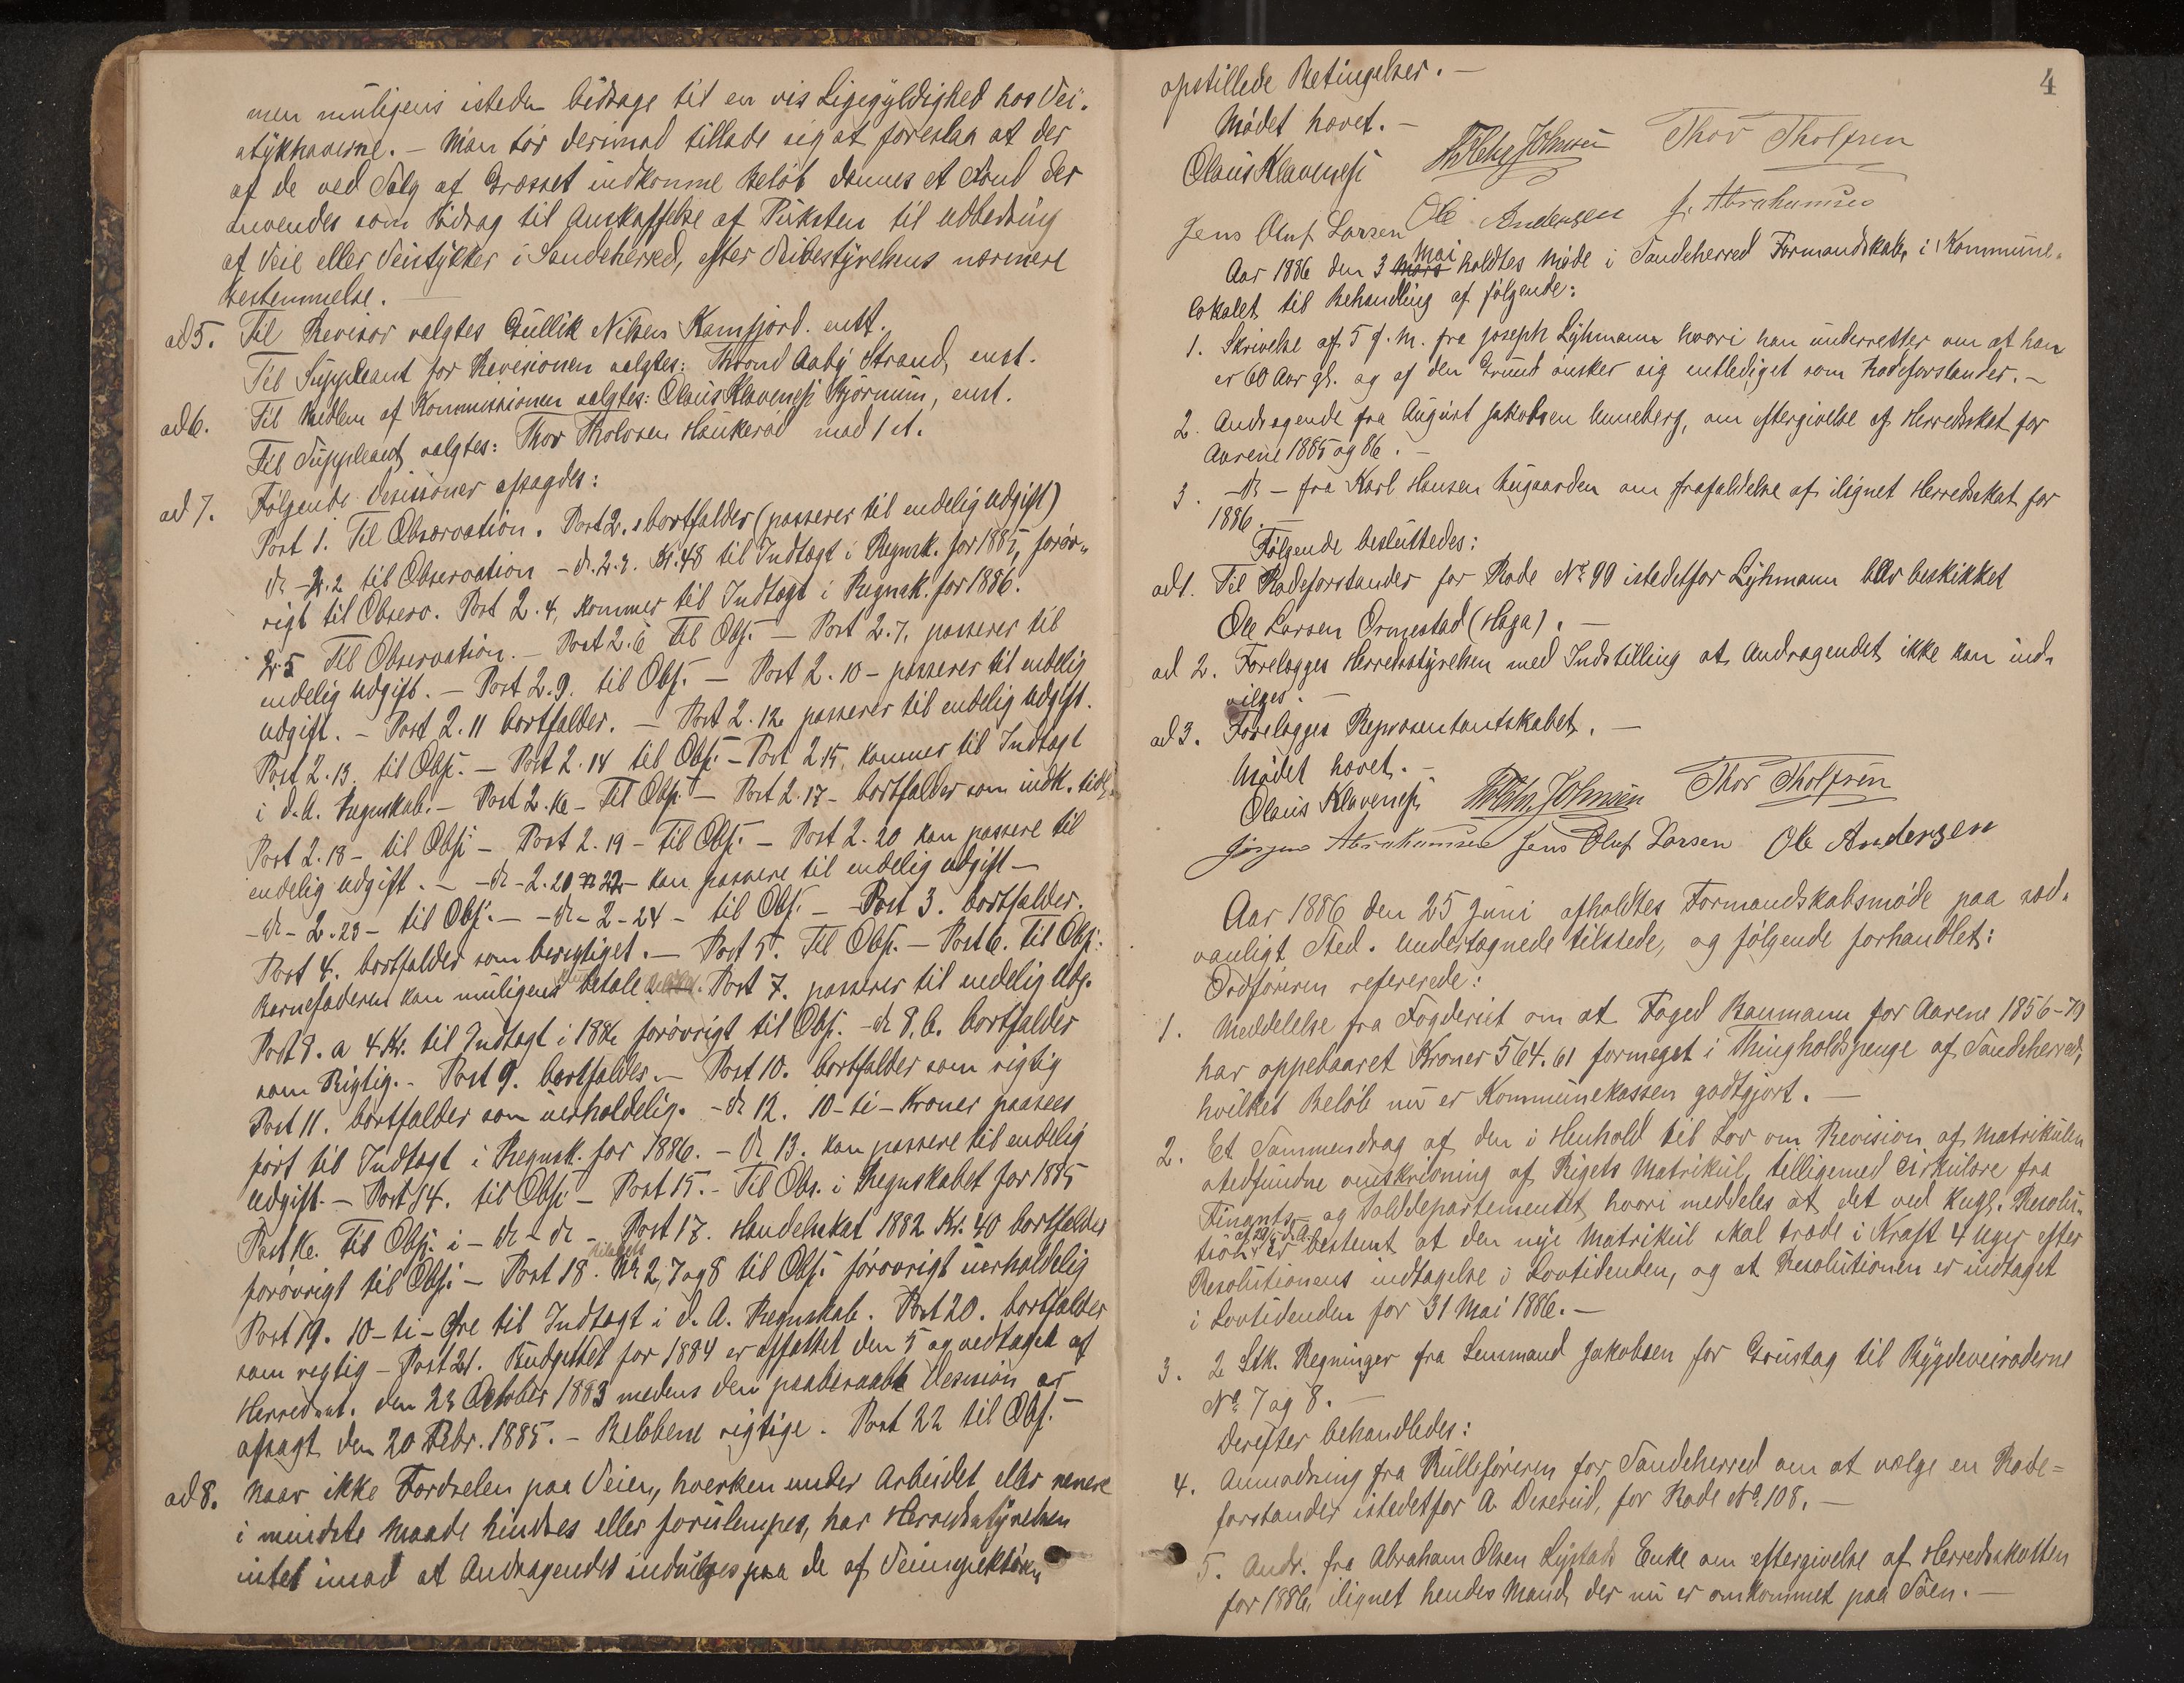 men muligens isteden bidrage til en vis Ligegyldighed hos Vei-
stykhaverne. – Man tør derimod tillade sig at foreslaa at der
af de ved Salg af Græsset indkomne Beløb dannes et Fond der
anvendes som Bidrag til Anskaffelse af Puksten til Udbedring
af Veie eller Veistykker i Sandeherred, efter Veibestyrelsens nærmere
Bestemmelse. —
ad 5. Til Revisor valgtes Gullik Nilsen Kamfjord. enst.
Til Suppleant for Revisionen valgtes: Thrond Aaby Strand, enst.
ad 6. Til Medlem af Kommissionen valgtes: Olaus Klaveness Bjørnum, enst.
Til Suppleant valgtes: Thor Tholvsen Haukerød mod 1 st.
ad 7. Følgende Desisioner afsagdes:
Post 1. Til Observation. Post 2. 1 bortfalder (passerer til endelig Udgift)
do - 2.2 til Observation - do. 2.3. Kr. 48 til Indtægt i Regnsk. for 1885, forøv-
rigt til Observ. Post 2.4, kommer til Indtægt i Regnsk. for 1886.
2.5 Til Observation. – Post 2.6 til Obs. – Post 2.7. passerer til
endelig Udgift. – Post 2.9. til Obs. – Post 2.10 – passerer til endelig
Udgift. – Post 2.11 bortfalder. – Post 2.12 passerer til endelig Udgift.
Post 2.13. til Obs. – Post 2.14 til Obs. – Post 2.15. kommer til Indtægt
i d. A. Regnskab. – Post 2.16 – Til Obs. – Post 2.17 – bortfalder som indk. tidl.
Post 2.18 – til Obs. – Post 2.19 – til Obs. – Post 2.20 kan passere til
endelig Udgift. – – do – 2.20 22 – kan passere til endelig Udgift –
– do – 2.23 – til Obs. – – do – 2 – 24 – til Obs. – Post 3. bortfalder.
Post 4. bortfalder som berigtiget. – Post 5. Til Obs. – Post 6. Til Obs.
Barnefaderen kan muligens betale. Post 7. passerer til endelig Udg.
Post 8. a 4 Kr. til Indtægt i 1886 forøvrigt til Obs. – do 8. b. bortfalder
som Rigtig. – Post 9. bortfalder. – Post 10. bortfalder som rigtig
Post 11. bortfalder som uerholdelig. – do 12. 10 – ti – Kroner paasees
ført til Indtægt i Regnsk. for 1886. – do 13. kan passere til endelig
Udgift. – Post 14. til Obs. – Post 15. – Til Obs. i Regnskabet for 1885
Post 16. Til Obs. i – do – do – Post 17. Handelsskat 1882 Kr. 40 bortfalder
forøvrigt til Obs. – Post 18. Bilagets No 2, 7 og 8 til Obs. forøvrigt uerholdelig
Post 19. 10 – ti – Øre til Indtægt i d. A. Regnskab. Post 20. bortfalder
som rigtig – Post 21. Budgettet for 1884 er affattet den 5 og vedtaget af
Herredsst. den 23 October 1883 medens den paaberaabte Desision er
afsagt den 20 Febr. 1885. – Beløbene rigtige. Post 22 til Obs. –
ad 8. Naar ikke Færdselen paa Veien, hverken under Arbeidet eller senere
i mindste Maade hindres eller forulempes, har Herredsstyrelsen
intet imod at Andragendet indvilges paa de af Veiinspektøren
4
opstillede Betingelser. –
Mødet hævet. –
Olaus Klaveness Thor Tholfsen
Jens Oluf Larsen Ole Andersen J. Abrahamsen
Aar 1886 den 3 Mars Mai holdtes Møde i Sandeherred Formandskab, i Kommune-
lokalet til Behandling af følgende:
1. Skrivelse af 5 f. M. fra Joseph Lyhmann hvori han underretter om at han
er 60 Aar gl. og af den Grund ønsker sig entlediget som Rodeforstander. –
2. Andragende fra August Jakobsen Unneberg, om eftergivelse af Herredsskat for
Aarene 1885 og 86. –
3. – do – fra Karl Hansen Bugaarden om frafaldelse af ilignet Herredsskat for
1886. –
Følgende besluttedes:
ad 1. Til Rodeforstander for Rode No. 99 istedetfor Lyhmann blev beskikket
Ole Larsen Ormestad (Haga). –
ad 2. Forelægges Herredsstyrelsen med Indstilling at Andragendet ikke kan ind-
vilges. –
ad 3. Forelægges Repræsentantskabet. –
Mødet hævet. –
Olaus Klaveness Thor Tholfsen
Jørgen Abrahamsen Jens Oluf Larsen Ole Andersen
Aar 1886 den 25 Juni afholdtes Formandskabsmøde paa sæd-
vanligt Sted. Undertegnede tilstede, og følgende forhandlet:
Ordføreren refererede:
1. Meddelelse fra Fogderiet om at Foged Baumann for Aarene 1856–79
har oppebaaret Kroner 564.61 formeget i Thingholdspenge af Sandeherred,
hvilket Beløb nu er Kommunekassen godtgjort. –
2. Et Sammendrag af den i Henhold til Lov om Revision af Matrikulen
stedfundne omskrivning af Rigets Matrikul, tilligemed Cirkulære fra
Finants- og Tolddepartementet hvori meddeles at det ved Kngl. Resolu-
tion er bestemt at den nye Matrikul skal træde i Kraft 4 Uger efter
Resolutionens indtagelse i Lovtidenden, og at Resolutionen er indtaget
i Lovtidenden for 31 Mai 1886. –
3. 2 Stk. Regninger fra Lensmand Jakobsen for Grustag til Bygdeveiroderne
No. 7 og 8. –
Derefter behandledes:
4. Anmodning fra Rulleføreren for Sandeherred om at vælge en Rode=
forstander istedetfor A. Deserud, for Rode No. 108. –
5. Andr. fra Abraham Olsen Lystads Enke om eftergivelse af Herredsskatten
for 1886, ilignet hendes Mand, der nu er omkommet paa Søen. –